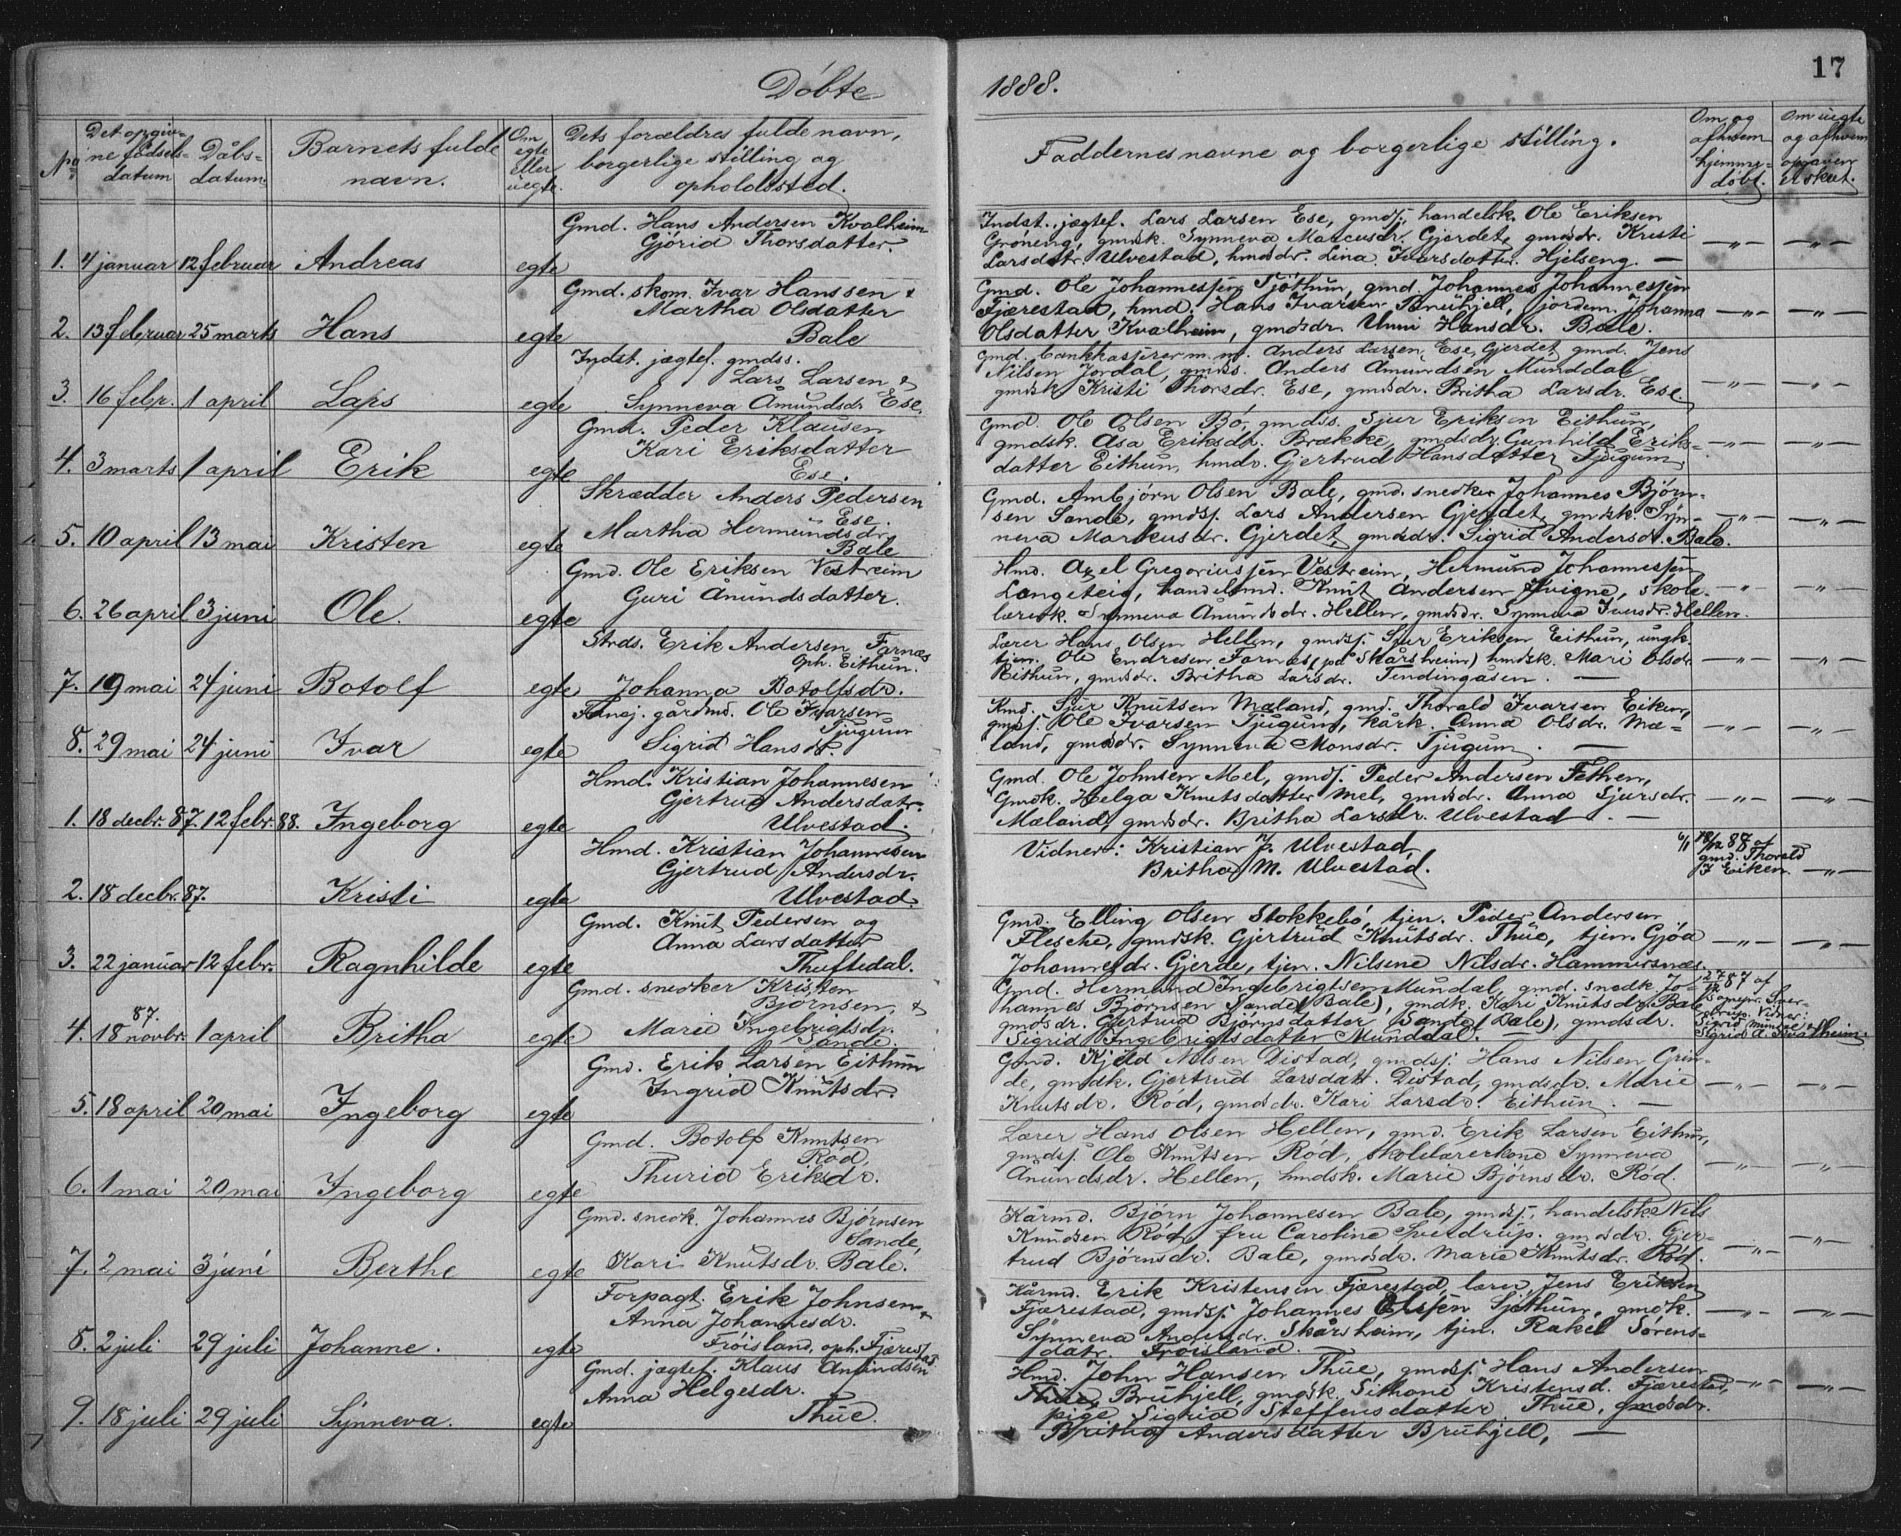 Døbte
1888.
17
No
Det opgivne fødselsdatum
Dåbsdatum.
Barnets fulde navn.
Om egte eller uegte.
Dets forældres fulde navn, borgerlige stilling og opholdssted.
Faddernes navne og borgerlige stilling.
Om og af hvem hjemmedøbt.
Om uegte og af hvem opgaven er skeet.
1. 4 januar 12 februar Andreas egte
Gmd. Hans Andersen Kvalheim
Gjørid Thorsdatter.
Indst. jægtef. Lars Larsen Ese, gmdsf, handelsk. Ole Eriksen
Grøneng, gmdsk. Synneva Marcusdr. Gjerdet, gmdsdr. Kristi
Larsdatr. Ulvestad, hmdsdr. Lina Ivarsdatter Hjelseng. —
2. 13 februar 25 marts Hans egte
Gmd. skom. Ivar Hanssen &
Martha Olsdatter
Bale
Gmd. Ole Johannessen Sjøthun, gmd. Johannes Johannessen
Fjærestad, hmd. Hans Ivarsen Bruhjell, jordem. Johanna
Olsdatter Kvalheim, gmdsdr. Unni Hansdr. Bale.
3. 16 febr. 1 april Lars egte
Indst. jægtef. gmdss.
Lars Larsen &
Synneva Amundsdr. Ese.
Gmd. bankkasserer m.m. Anders Larsen Ese, Gjerdet, gmd. Jens
Nilsen Jordal, gmdss. Anders Åmundsen Munddal
gmdsk Kristi Thorsdr. Ese, gmdsdr. Britha Larsdr. Ese.
4. 3 marts 1 april Erik egte
Gmd. Peder Klausen
Kari Eriksdatter
Ese.
Gmd. Ole Olsen Bø, gmdss. Sjur Eriksen Eithun,
gmdsk. Åsa Eriksdr. Brække, gmdsdr. Gunhild Eriksdatter
Eithun, hmdr. Gjertrud Hansdatter Tjugum
5. 10 april 13 mai Kristen egte
Skrædder Anders Pedersen
Ese.
Martha Hermundsdr.
Bale
Gmd. Ambjørn Olsen Bale, gmd. snedker Johannes Bjørnsen
Sande, gmdsf. Lars Andersen Gjerdet, gmdsk. Synneva
Markusdr. Gjerdet, gmdsdr. Sigrid Andersdr. Bale.
6. 26 april 3 juni Ole. egte
Gmd. Ole Eriksen Vestreim
Guri Ånundsdatter.
Hmd. Axel Gregoriussen Vestreim, Hermund Johannessen
Langeteig, handelsmd. Knut Andersen Hvigne, skolelærersk.
Synneva Ånundsdr. Hellen, gmdsdr. Synneva Ivarsdr. Hellen.
7. 19 mai 24 juni Botolf egte
Strds. Erik Andersen Farnæs
oph. Eithun.
Johanna Botolfsdr.
Lærer Hans Olsen Hellen, gmdsf. Sjur Eriksen Eithun, ungk.
tjen. Ole Endresen Farnes (på Skårsheim) hmdsk. Mari Olsdr.
Eithun, gmdsdr. Britha Larsdr. Tendingåsen. —
8. 29 mai 24 juni Ivar egte
gårdmd. Ole Ivarsen
Tjugum
Sigrid Hansdr.
Kmd. Sjur Knutsen Mæland, gmd. Thorald Ivarsen Eiken,
gmdsf. Ole Ivarsen Tjugum, kårk. Anna Olsdr. Mæland,
gmdsdr. Synneva Monsdr. Tjugum. —
1. 18 decbr. 87. 12 febr. 88. Ingeborg egte
Hmd. Kristian Johannesen
Gjertrud Andersdatr.
Ulvestad.
Gmd. Ole Johnsen Mel, gmdsf. Peder Andersen Fethen,
Gmdsk. Helga Knutsdatter Mel, gmdsdr. Anna Sjursdr.
Mæland, gmdsdr. Britha Larsdr. Ulvestad. —
2. 18 decbr. 87. Kristi egte
Hmd. Kristian Johannesen
Gjertrud Andersdr.
Ulvestad.
Vidner: Kristian J. Ulvestad,
Britha M. Ulvestad.
18/12 88 af
gmd. Thorald
I Eiken.
3. 22 januar 12 febr. Ragnhilde egte
Gmd. Knut Pedersen og
Anna Larsdatter
Thuftedal.
Gmd. Elling Olsen Stokkebø, tjen. Peder Andersen
Flesche, gmdsk. Gjertrud Knutsdr. Thue, tjen. Gjøa
Johannesdr. Gjerde, tjen. Nilsine Nilsdr. Hammersnæs.
4. 18 novbr. 87. 1 april Britha egte
Gmd. snedker Kristen
Bjørnsen &
Marie Ingebrigtsdr.
Sande.
Gmd. Hermund Ingebrigtsen Mundal, gmd. snedk. Johannes
Bjørnsen Sande (Bale), gmdk. Kari Knutsdr. Bale
gmdsdr. Gjertrud Bjørnsdatter Sande (Bale), gmdsdr.
Sigrid Ingebrigtsdatter Munddal.
87 af
Sogepr. Sverdrup. Vidner:
Sigrid Mundal &
Sigrid A. Kvalheim.
5. 18 april 20 mai Ingeborg egte
Gmd. Erik Larsen Eithun
Ingrid Knutsdr.
Gmd. Kjeld Nilsen Distad, gmdsf. Hans Nilsen Grinde,
gmdk. Gjertrud Larsdatt. Distad, gmdsdr. Marie
Knutsdr. Rød, gmdsdr. Kari Larsdr. Eithun. —
6. 1 mai 20 mai Ingeborg egte
Gmd. Botolf Knutsen
Rød,
Thurid Eriksdr.
Lærer Hans Olsen Hellen, gmd. Erik Larsen Eithun,
gmdsf. Ole Knutsen Rød, skolelærerkone Synneva
Ånundsdr. Hellen, hmdsk. Marie Bjørnsdr. Rød.
7. 2 mai 3 juni Berthe egte
Gmd. snedk. Johannes Bjørnsen
Sande,
Kari Knutsdr. Bale.
Kårmd. Bjørn Johannesen Bale, gmdsf, handelsk. Nils
Knudsen Rød, fru Caroline Sverdrup. gmdsdr. Gjertrud
Bjørnsdr. Bale, gmdsdr. Marie Knutsdr. Rød.
8. 2 juli 29 juli Johanne. egte
Forpagt. Erik Johnsen &
Anna Johannesdr.
Frøisland, oph. Fjærestad.
Kårmd. Erik Kristensen Fjærestad, lærer Jens Eriksen
Fjærestad, gmdsf. Johannes Olsen Sjøthun, gmdk.
Synneva Andersdr. Skårsheim, tjen. Rakel Sørensdatr.
Frøisland.
9. 18 juli 29 juli Synneva. egte
Gmd. jægtef. Klaus Anfindsen
Anna Helgesdr.
Thue.
Hmd. John Hansen Thue, gmdsf. Hans Andersen
Bruhjell, gmdsk. Sithone Kristensd. Fjærestad,
pige Sigrid Steffensdatter Thue, gmdsdr.
Britha Andersdatter Bruhjell, —